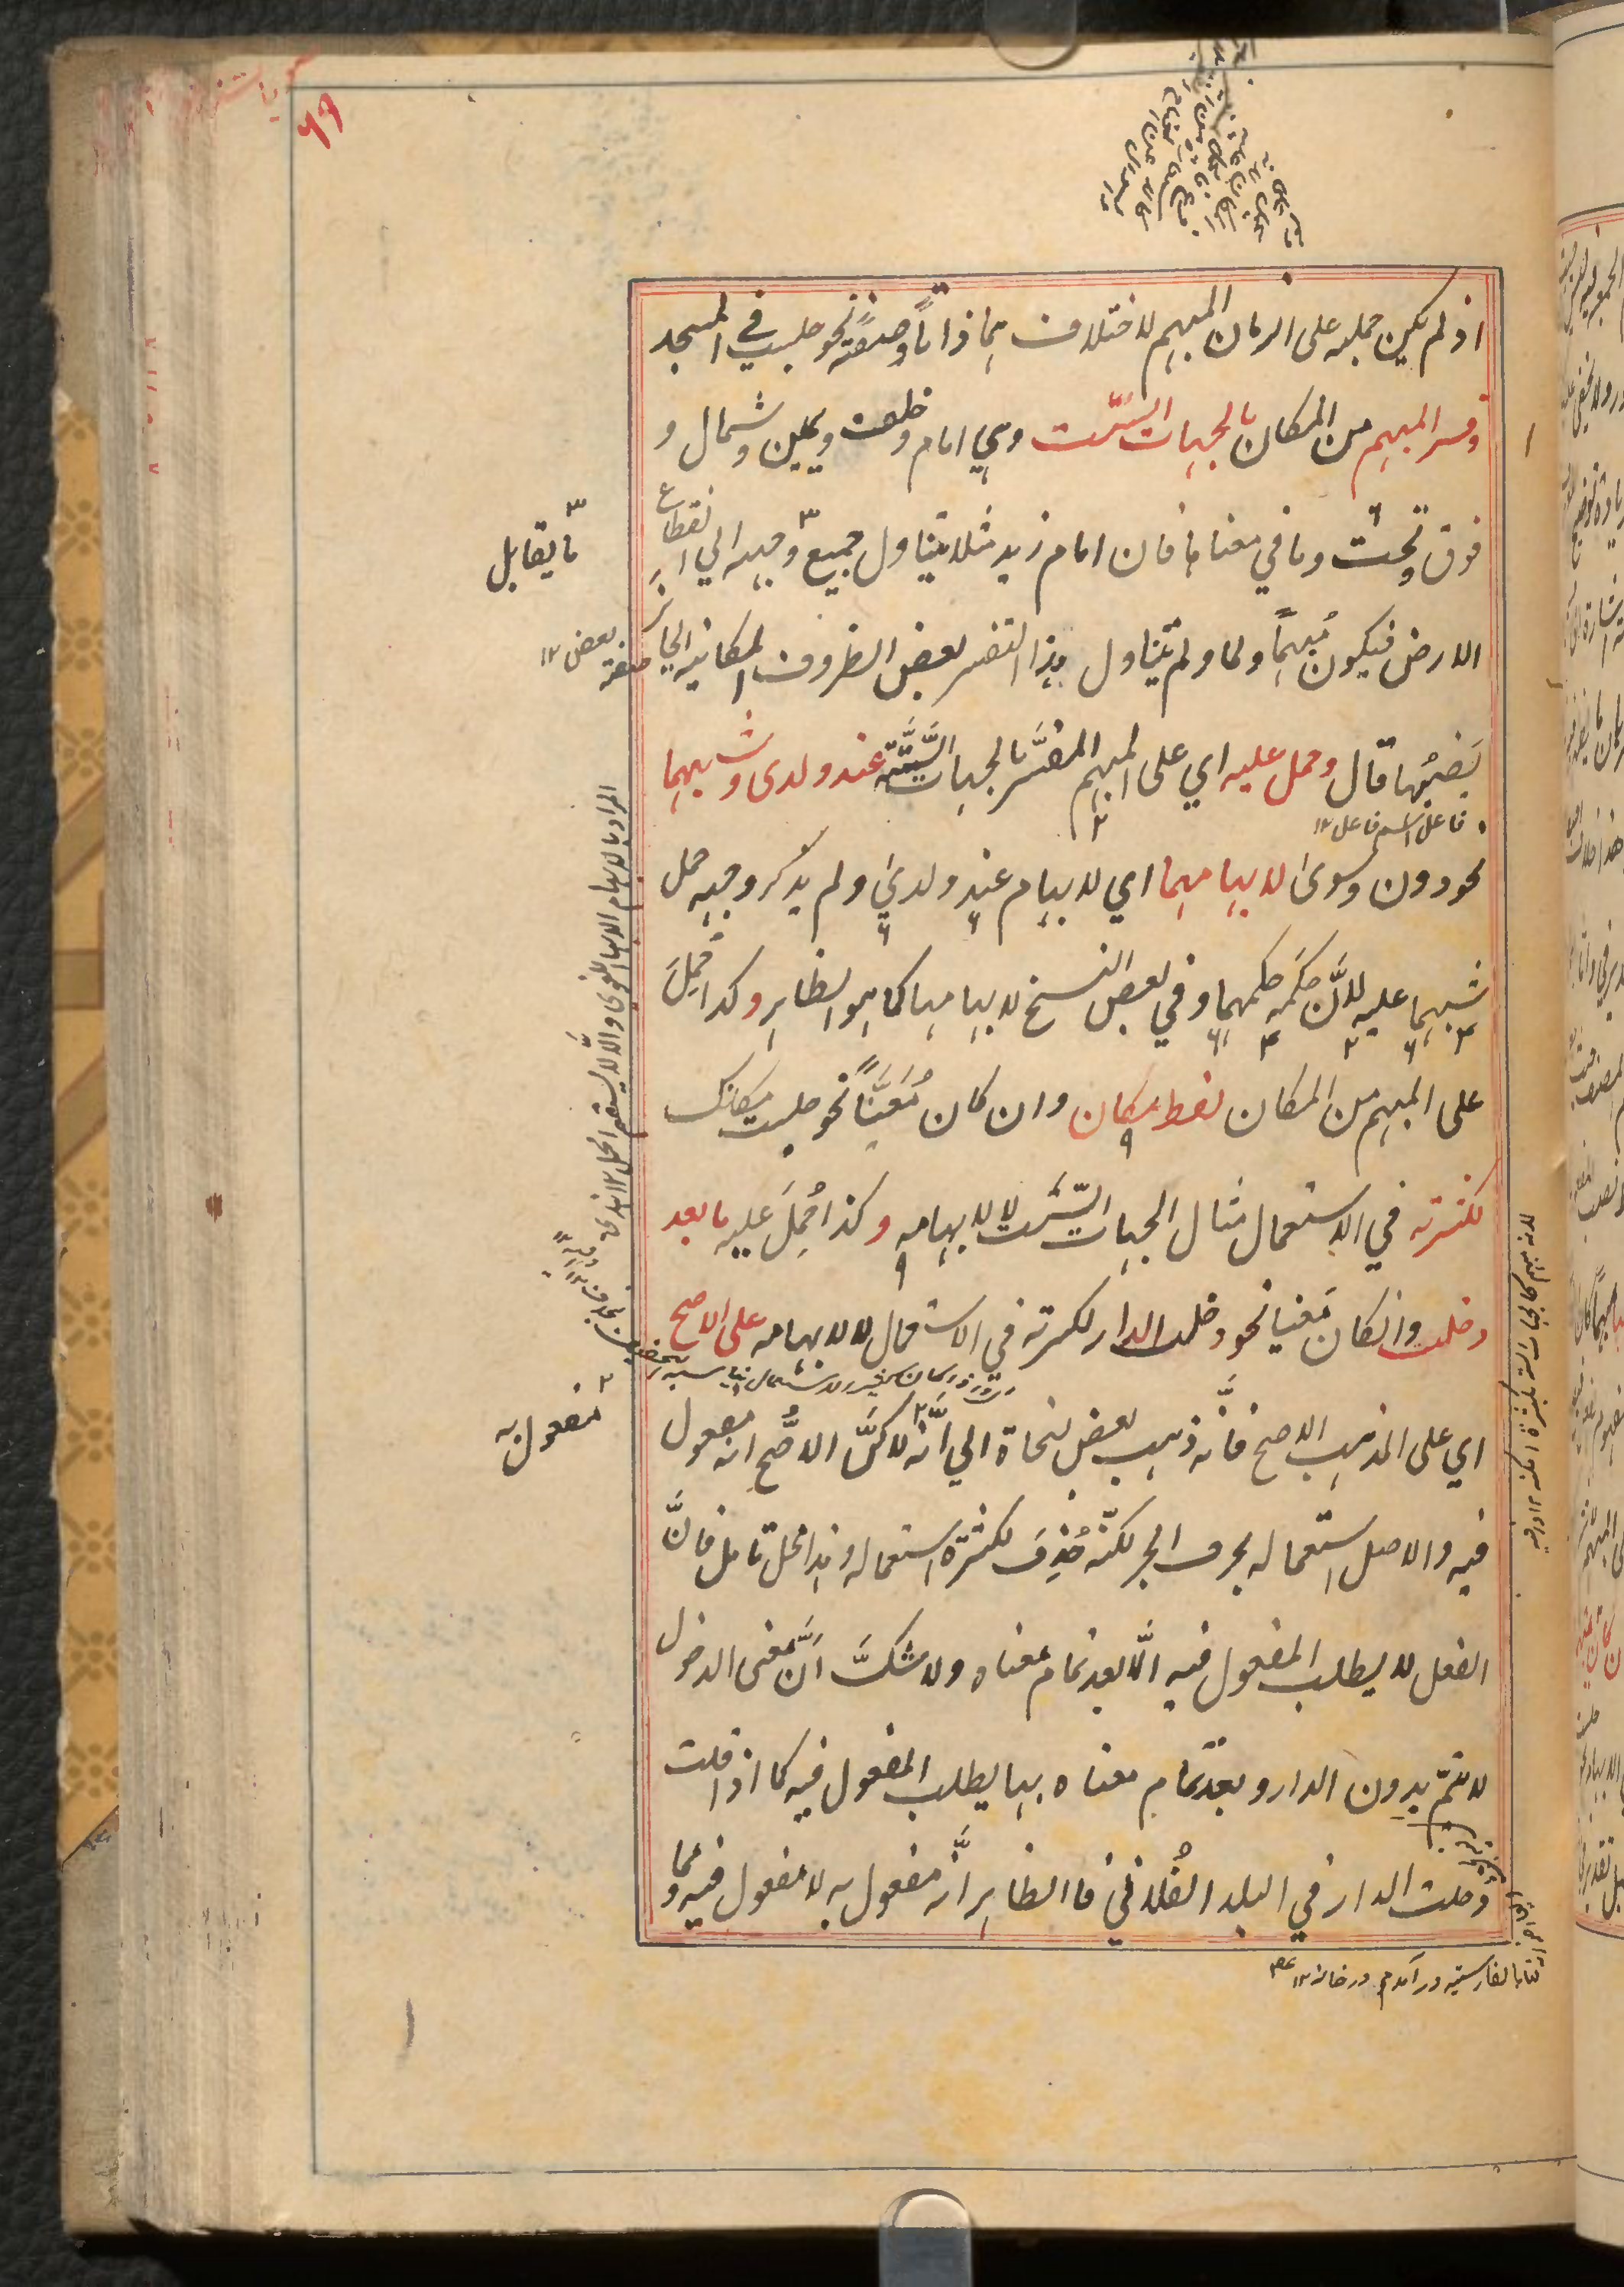 اذ لم يكن حمله على الزمان المبهم لاختلافهما ذاتاً وصفةً نحو جلست في المسجد
وفسر المبهم من المكان بالجهات الستّ وهي امام وخلف ويمين وشمال و
فوق وتحت وما في معناها فان امام زيد مثلا يتناول جميع وجهه الي انقطاع
الارض فيكون مُبهماً ولما لم يتناول هذا التفسير بعض الظروف المكانية الجائز
نصبُها قال وحمل عليه اي على المبهم المفسَّر بالجهات السّتّة عند ولدى وشبههما
نحو دون وسوى لابهامهما اي لابهام عند ولدي ولم يذكر وجه حمل
شبههما عليه لانَّ حكمَه حكمهما وفي بعض النسخ لابهامها كما هو الظاهر وكذا حُمِلَ
على المبهم من المكان لفظ مكان وان كان مُعيَّناً نحو جلست مكانك
لكثرته في الاستعمال مثال الجهات السّت لا لابهامه وكذا حُمِلَ عليه ما بعد
دخلت وانكان مَعنيا نحو دخلت الدار لكثرته في الاستعمال لا لابهامه على الاصح
اي على المذهب الاصح فانَّه ذهب بعض نحاة الي انَّه لاكنَّ الاصحُّ انه مفعول
فيه والاصل استعماله بحرف الجر لكنّه حُذِفَ لكثرة استعماله وهذا محل تامل فانَّ
الفعل لا يطلب المفعول فيه الّا بعد تمام معناه ولا شكَّ اَنَّ معنى الدخول
لا يتمّ بدون الدار وبعد تمام معناه بها يطلب المفعول فيه كما اذا قلت
دخلت الدار في البلد الفُلاني فا الظاهر انَّه مفعول به لا مفعول فيه ومما
ما يقابل
صفة بعض ١٢
فاعل اسم فاعل ١٢
مفعول به
٦٩